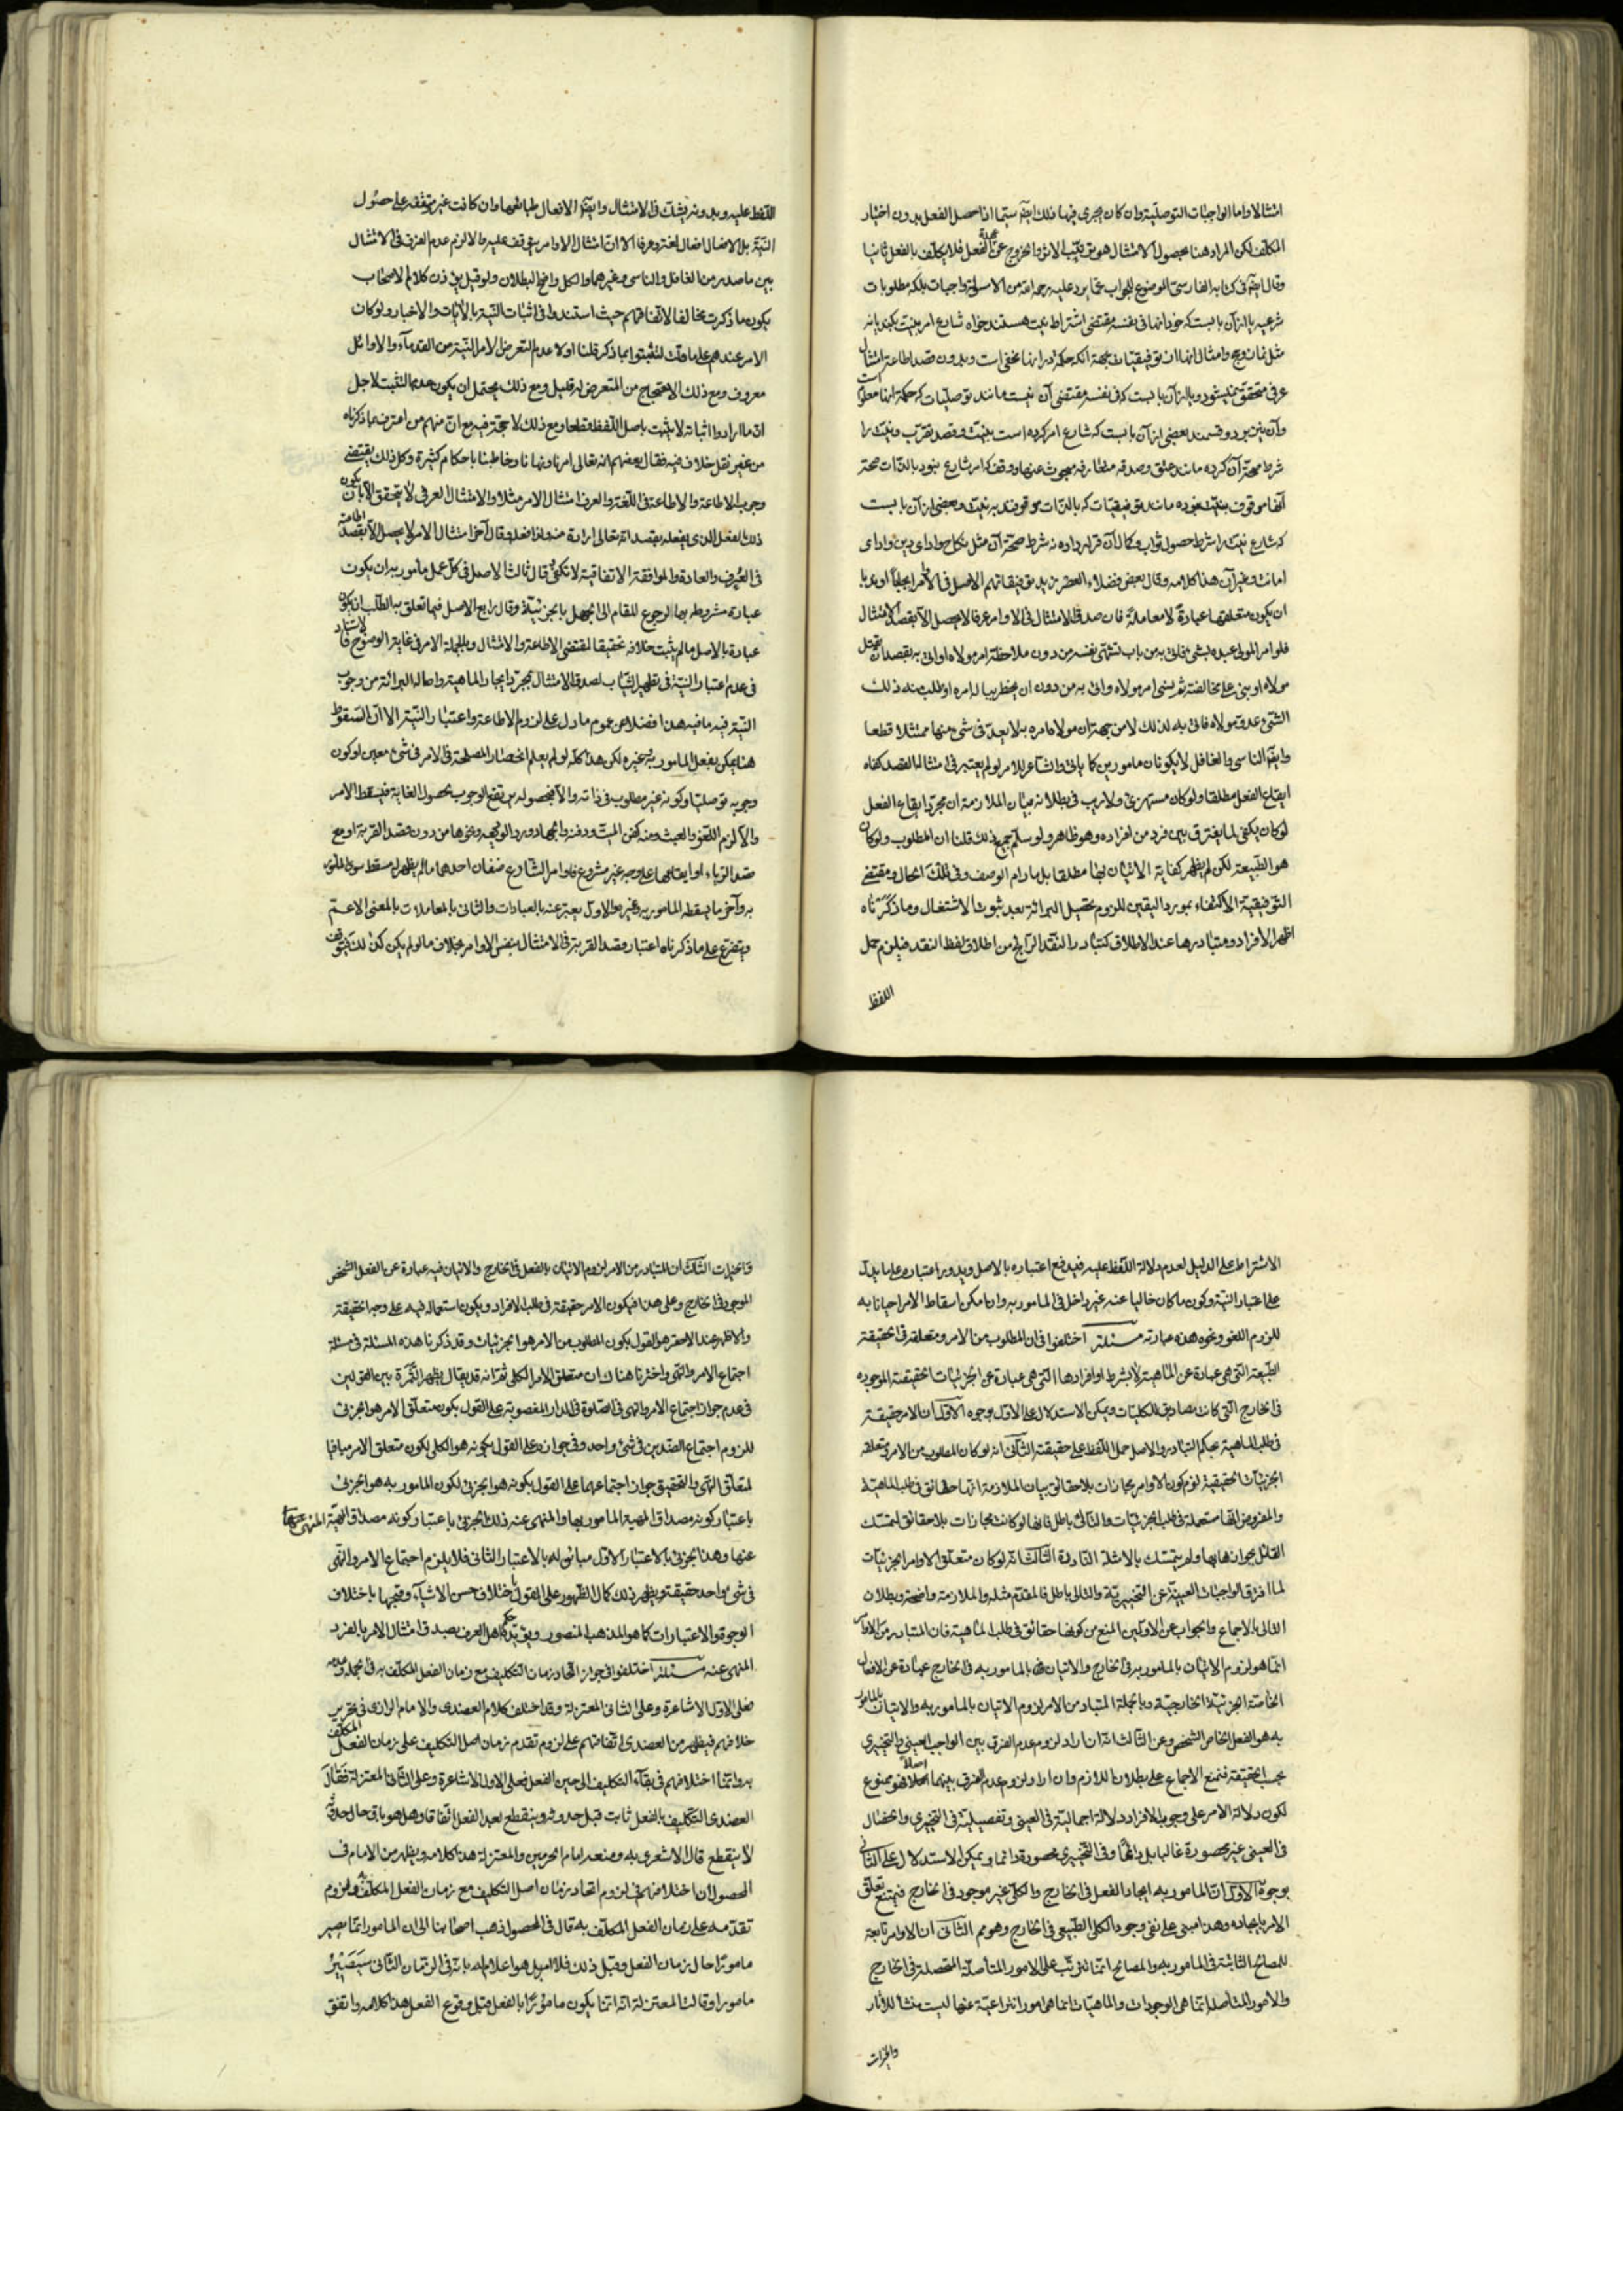 امتثالا واما الواجبات التوصلية وان كان يجرى فيها ذلك ايضا سيما اذا حصل الفعل بدون اختيار
المكلف لكن المراد هنا بحصول الامتثال هو ترتب الاثر والخروج عن عهدة الفعل فلا يكلف بالفعل ثانيا
وقال ايضا فى كتابه الفارسى الموضوع للجواب عما يرد عليه رحمه الله من الاسولة واجبات بلكه مطلوبات
شرعيه يا از آن بابست كه خود انها فى نفسه مقتضى اشتراط نيت هستند خواه شارع امر بنيت بكند يا نه
مثل نماز وحج وامثال انها از توقيفيات بجهة آنكه حكمة در اينها مخفى است وبدون قصد اطاعة امتثال
عرفى متحقق نميشود ويا از آن بابست كه فى نفسه مقتضى آن نيست مانند توصليات كه حكمة انها معلوم است
وآن نيز بر دو قسمند بعضى از آن بابست كه شارع امر كرده است بنيت وقصد تقرب ونيت را
شرط صحة آن كرده مانند عتق وصدقه
آنها موقوف بنيت نبوده مانند توقيفيات كه بالذات موقوفند به نيت وبعضى از آن بابست
كه شارع نيت را شرط حصول ثواب وكمال آن قرار داده نه شرط صحة آن مثل نكاح وادای دين وادای
امانت وغير آن هذا كلامه وقال بعض فضلاء العصر يزيد توفيقاتهم الاصل فى الامر ايجابا او ندبا
ان يكون متعلقها عبادة لا معاملة فان صدق الامتثال فى الاوامر عرفا لا يحصل الا بقصد الامتثال
فلو امر المولى عبده بشئ فاتى به من باب تشهى نفسه من دون ملاحظة امر مولاه او اتى به بقصد ان يقتل
مولاه او بنى على مخالفته ثم نسى امر مولاه واتى به من دون ان يخطر بباله امره او طلب منه ذلك
الشئ عدو مولاه فاتى به لذلك لا من جهة ان مولاه امره به لا يعد فى شئ منها ممتثلا قطعا
وايضا الناسى والغافل لا يكونان مامورين كما ياتى وانشاعر للامر لو لم يعتبر فى امتثاله القصد كفاه
ايقاع الفعل مطلقا ولو كان مستهزئ ولا ريب فى بطلانه بيان الملازمة ان مجرد ايقاع الفعل
لو كان يكفى لما يفترق بين فرد من افراده وهو ظاهر ولو سلم جميع ذلك قلنا ان المطلوب ولو كان
هو الطبيعة لكن لم يظهر كفاية الاتيان بها مطلقا بل ما دام الوصف وفى تلك الحال ومقتضى
التوقيفية الاكتفاء بمورد اليقين للزوم تحصيل البرائة بعد ثبوت الاشتغال وما ذكرناه
اظهر الافراد ومتبادرها عند الاطلاق كتبادر النقد الرايج من اطلاق لفظ النقد فيلزم حمل
اللفظ
اللفظ عليه وبدونه يشك فى الامتثال وايضا الافعال طبائعها وان كانت غير متوقفه على حصول
النية بل الافعال افعال لغة وعرفا الا ان امتثال الاوامر يتوقف عليه والا لزم عدم الفرق فى الامتثال
بين ما صدر من الغافل والناسى وغيرهما والكل واضح البطلان ولو قيل كلام الاصحاب
يكون ما ذكرت مخالفا لاتفاقهم حيث استندوا فى اثبات النية بالايات والاخبار ولو كان
الامر عندهم على ما قلت لتشبثوا بما ذكر قلنا اولا عدم التعرض لامر النية من القدماء والاوائل
معروف ومع ذلك الاحتجاج من المتعرض له قليل ومع ذلك يحتمل ان يكون عدم التشبث لاجل
ان ما ارادوا اثباته لا يثبت باصل اللفظ قطعا ومع ذلك لا حجة فيه مع ان منهم من اعترف بما ذكرناه
من غير نقل خلاف فيه فقال بعضهم انه تعالى امرنا ونهانا وخاطبنا باحكام كثيرة وكل ذلك يقتضى
وجوب الاطاعة والاطاعة فى اللغة والعرف امتثال الامر مثلا والامتثال العرفى لا يتحقق الا بان يكون
ذلك الفعل الذى يفعله بقصد انه تعالى اراده منه وقال آخر امتثال الامر لا يحصل الا بقصد اطاعته
فى العرف والعادة والموافقة الاتفاقية لا تكفى وقال ثالث الاصل فى كل عمل مأمور به ان يكون
عبادة مشروطه بها الرجوع للمقام الى الجهل بالجزئية وقال رابع الاصل فيما تعلق به الطلب ان يكون
عبادة بالاصل ما لم يثبت خلافه تحقيقا لمقتضى الاطاعة والامتثال وبالجملة الامر فى غاية الوضوح
فى عدم اعتبار النية فى تطهير الثياب لصدق الامتثال بمجرد ايجاد الماهية واصالة البرائة من وجوب
النية فيه ما فيه هذا فضلا عن عموم ما دل على لزوم الاطاعة واعتبار النية الا ان السقوط
هنا يمكن بفعل المامور به وغيره لكن هذا كله لو لم يعلم انحصار المصلحة فى الامر فى شئ معين لو كون
وجوبه توصليا وكونه غير مطلوب فى ذاته والا فبحصوله يرتفع الوجوب بحصول الغاية فيسقط الامر
والا لزم اللغو والعبث ومنه كفن الميت ودفنه والجهاد ورد الوديعة ونحوها من دون قصد القربة او مع
قصد الرياء او ايقاعها على وجه غير مشروع فاوامر الشارع ضفان احدهما ما لم يظهر له مسقط سوى المامور
به وآخر ما يسقطه المامور به وغيره والاول يعبر عنه بالعبادات والثانى بالمعاملات بالمعنى الاعم
ويتفرع على ما ذكرناه اعتبار وقصد القربة فى الامتثال بنفس الاوامر بخلاف ما لو لم يكن كذلك
الاشتراط على الدليل لعدم دلالة اللفظ عليه فيدفع اعتباره بالاصل ويدور اعتباره على ما يدل
على اعتبار النية وكون ما كان خاليا عنه غير داخل فى المامور به وان امكن اسقاط الامر احيانا به
للزوم اللغو ونحوه هذه عبارته مسئلة اختلفوا فى ان المطلوب من الامر ومتعلقه فى الحقيقة
الطبيعة التى هى عبارة عن الماهية لا بشرط او افرادها التى هى عبارة عن الجزئيات الحقيقية الموجوده
فى الخارج التى كانت مصاديق للكليات ويمكن الاستدلال على الاول بوجوه الاول ان الامر حقيقة
فى طلب الماهية بحكم التبادر والاصل حمل اللفظ على حقيقته الثانى انه لو كان المطلوب من الامر ومتعلقه
الجزئيات الحقيقية لزم كون الاوامر مجازات بلا حقائق بيان الملازمة انها حقائق فى طلب الماهية
والمفروض انها مستعملة فى طلب الجزئيات والتالى باطل فانها لو كانت مجازات بلا حقائق لتمسك
القائل بجوازها بها ولم يتمسك بالامثلة النادرة الثالث انه لو كان متعلق الاوامر الجزئيات
لما افترق الواجبات العينية عن التخييرية والتالى باطل فالمقدم مثله والملازمة واضحة وبطلان
التالى بالاجماع والجواب عن الاولين المنع من كونها حقائق فى طلب الماهية فان المتبادر من الاوامر
انما هو لزوم الاتيان بالمامور به فى الخارج والاتيان بالمامور به فى الخارج عبارة عن الافعال
الخاصة الجزئية الخارجية وبالجملة المتبادر من الامر لزوم الاتيان بالمامور به والاتيان بالمامور
به هو الفعل الخاص الشخصى وعن الثالث انه ان اراد لزوم عدم الفرق بين الواجب العينى والتخييرى
بحسب الحقيقة فنمنع الاجماع على بطلان اللازم وان اراد لزوم عدم الفرق بينهما اصلا فهو ممنوع
لكون دلالة الامر على وجوب الافراد دلالة اجمالية فى العينى وتفصيلية فى التخييرى والخصال
فى العينى غير محصورة غالبا بل دائما وفى التخييرى محصورة دائما ويمكن الاستدلال على الثانى
بوجوه الاول ان المامور به ايجاد الفعل فى الخارج والكلى غير موجود فى الخارج فيمتنع تعلق
الامر بايجاده وهذا مبنى على نفى وجود الكلى الطبيعى فى الخارج وهو مم الثانى ان الاوامر تابعة
للمصالح الثابتة فى المامور بها والمصالح انما تترتب على الامور المتأصلة المتحصلة فى الخارج
والامور المتأصلة انما هى الوجودات والماهيات انما هى امور انتزاعية عنها ليست منشأ للاثار
والمزات
الثالث ان المتبادر من الامر لزوم الاتيان بالفعل فى الخارج والاتيان فيه عبارة عن الفعل الشخصى
الموجود فى الخارج وعلى هذا فيكون الامر حقيقة فى طلب الافراد ويكون استعماله فيه على وجه الحقيقة
والاظهر عند الاحقر هو القول بكون المطلوب من الامر هو الجزئيات وقد ذكرنا هذه المسئلة فى مسئلة
اجتماع الامر والنهى واخترنا هناك ان متعلق الامر الكلى ثم انه قد يقال يظهر الثمرة بين القولين
فى عدم جواز اجتماع الامر والنهى فى الصلوة فى الدار المغصوبة على القول بكون متعلق الامر هو الجزئى
للزوم اجتماع الضدين فى شئ واحد وفى جوازه على القول بكونه هو الكلى لكون متعلق الامر مباينا
لمتعلق النهى والتحقيق جواز اجتماعهما على القول بكونه هو الجزئى لكون المامور به هو الجزئى
باعتبار كونه مصداق المهية المامور بها والمنهى عنه ذلك الجزئى باعتبار كونه مصداق المهية المنهى عنها
عنها وهذا الجزئى بالاعتبار الاول مباين له بالاعتبار الثانى فلا يلزم اجتماع الامر والنهى
فى شئ واحد حقيقة ويظهر ذلك كمال الظهور على القول باختلاف حسن الاشياء وقبحها باختلاف
الوجوه والاعتبارات كما هو المذهب المنصور حكم اهل العرف بصدق امتثال الامر بالفرد
المنهى عنه مسئلة اختلفوا فى جواز اتحاد زمان التكليف مع زمان الفعل المكلف به فى الجملة وعدمه
فعلى الاول الاشاعرة وعلى الثانى المعتزلة وقد اختلف كلام العضدى والامام الرازى فى تحرير
خلافهم فيظهر من العضدى اتفاقهم على لزوم تقدم زمان اصل التكليف على زمان الفعل المكلف
به وانما اختلافهم فى بقاء التكليف الى حين الفعل فعلى الاول الاشاعرة وعلى الثانى المعتزلة فقال
العضدى التكليف بالفعل ثابت قبل حدوثه وينقطع بعد الفعل اتفاقا وهل هو باق حال حدوثه
لا ينقطع قال الاشعرى به ومنعه امام الحرمين والمعتزلة هذا كلامه ويظهر من الامام فى
المحصول ان اختلافهم فى لزوم اتحاد زمان اصل التكليف مع زمان الفعل المكلف به ولزوم
تقدمه على زمان الفعل المكلف به قال فى المحصول ذهب اصحابنا الى ان المامور انما يصير
مامورا حال زمان الفعل وقبل ذلك فلا امر بل هو اعلام له بانه فى الزمان الثانى سيصير
مامورا وقالت المعتزلة انه انما يكون مامورا بالفعل قبل وقوع الفعل هذا كلامه واتفق